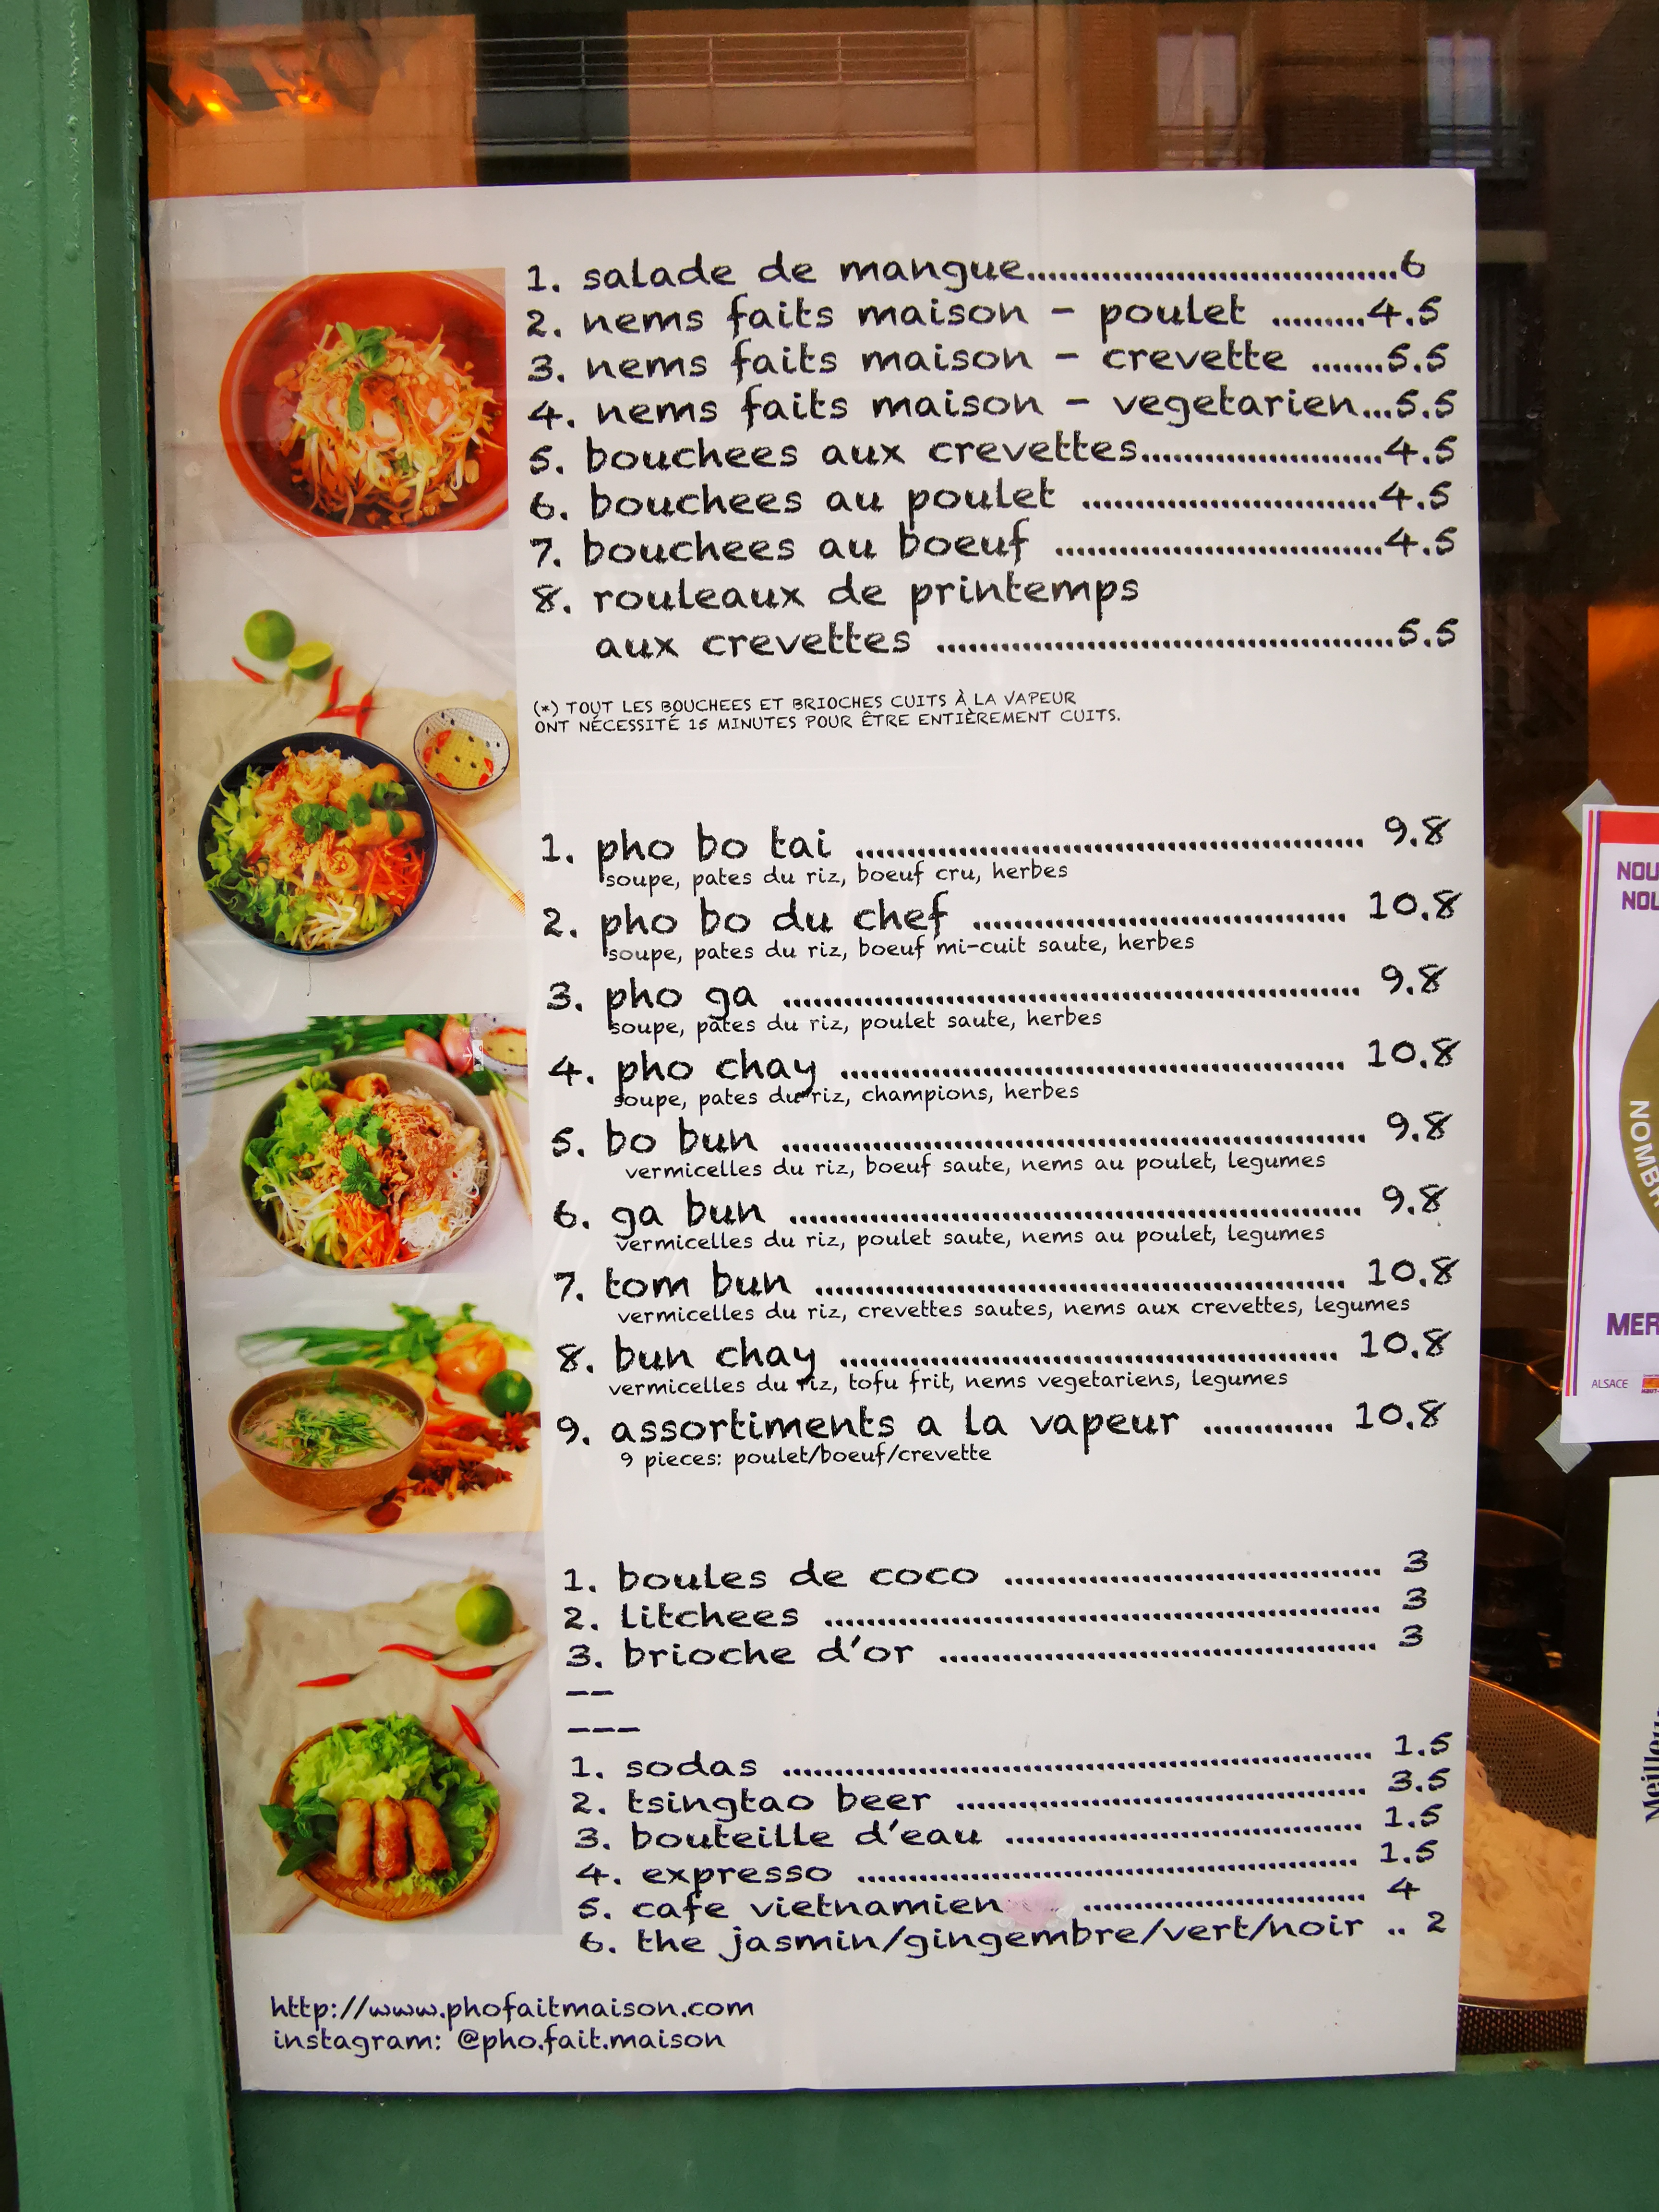 1. salade de mangue.......................................6
2. nems faits maison - poulet .........4.5
3. nems faits maison - crevette .......5.5
4. nems faits maison - vegetarien...5.5
5. bouchees aux crevettes.........................4.5
6. bouchees au poulet ...............................4.5
7. bouchees au boeuf ...................................4.5
8. rouleaux de printemps
aux crevettes .................................................5.5
(*) TOUT LES BOUCHEES ET BRIOCHES CUITS À LA VAPEUR
ONT NÉCESSITÉ 15 MINUTES POUR ÊTRE ENTIÈREMENT CUITS.
1. pho bo tai ...................................................... 9.8
soupe, pates du riz, boeuf cru, herbes
2. pho bo du chef ........................................ 10.8
soupe, pates du riz, boeuf mi-cuit saute, herbes
3. pho ga .............................................................. 9.8
soupe, pates du riz, poulet saute, herbes
4. pho chay ...................................................... 10.8
soupe, pates du riz, champions, herbes
5. bo bun .............................................................. 9.8
vermicelles du riz, boeuf saute, nems au poulet, legumes
6. ga bun ............................................................. 9.8
vermicelles du riz, poulet saute, nems au poulet, legumes
7. tom bun ......................................................... 10.8
vermicelles du riz, crevettes sautes, nems aux crevettes, legumes
8. bun chay ..................................................... 10.8
vermicelles du riz, tofu frit, nems vegetariens, legumes
9. assortiments a la vapeur ............. 10.8
9 pieces: poulet/boeuf/crevette
1. boules de coco ........................................ 3
2. litchees ........................................................... 3
3. brioche d'or ............................................... 3
--
---
1. sodas ............................................................... 1.5
2. tsingtao beer ............................................ 3.5
3. bouteille d'eau ....................................... 1.5
4. expresso ...................................................... 1.5
5. cafe vietnamien .............................. 4
6. the jasmin/gingembre/vert/noir .. 2
http://www.phofaitmaison.com
instagram: @pho.fait.maison
NOU
NOU
NOMBR
MER
ALSACE